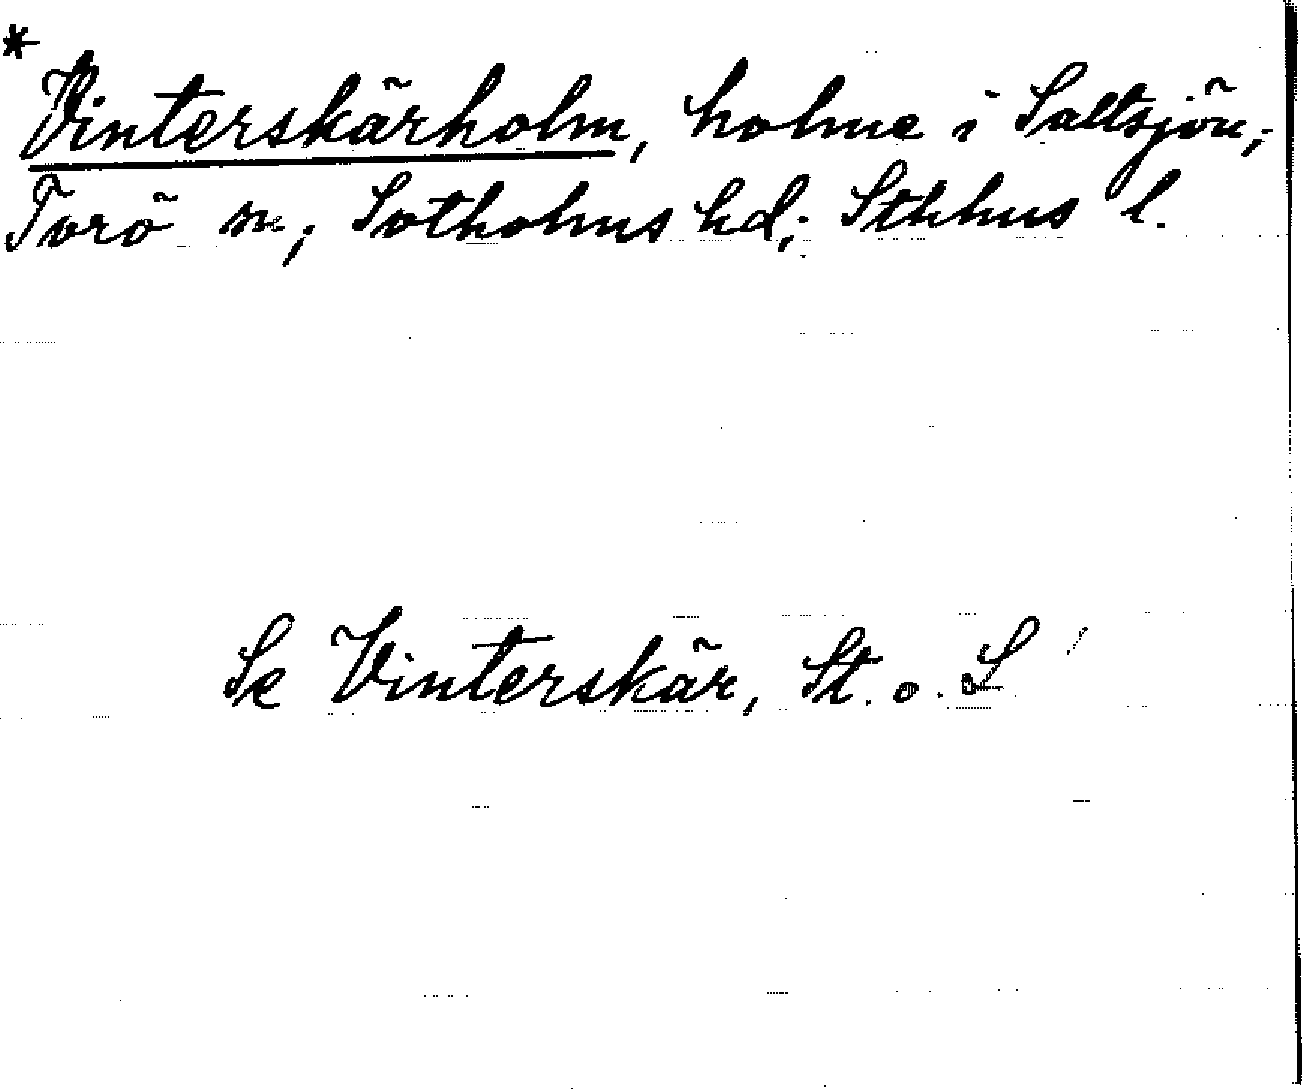 *
Vinterskärholm, holme i Saltsjön,
Torö sn, Sotholms hd, Sthlms l.
Se Vinterskär, St. o. L